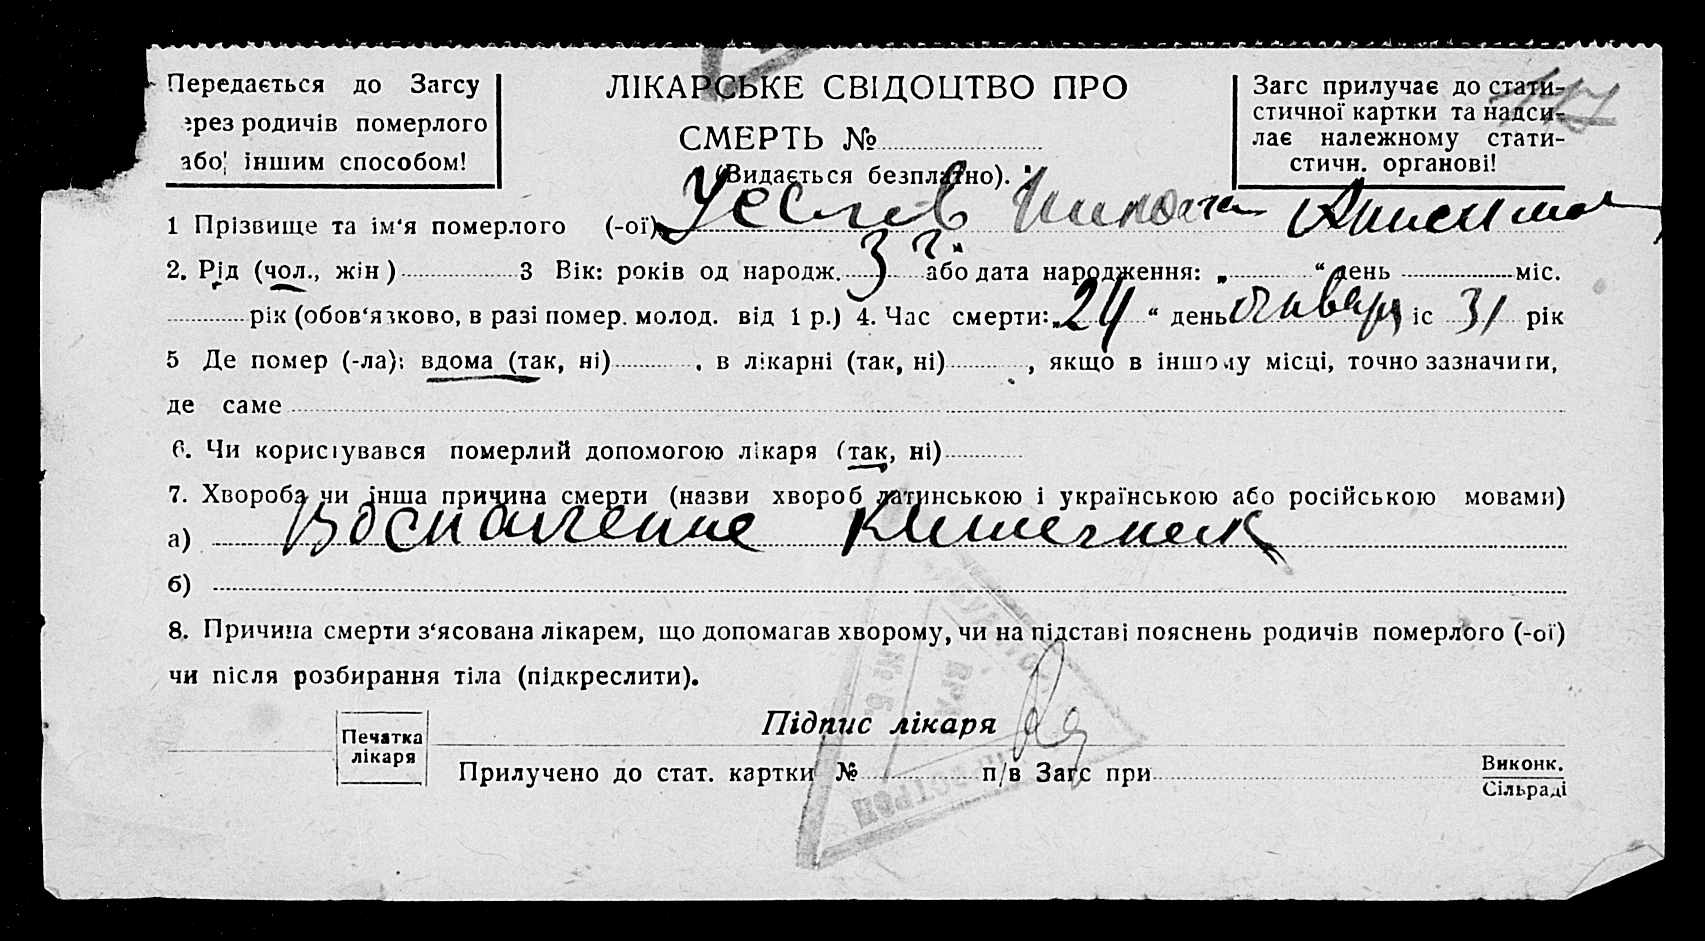 Передається до Загсу
через родичів померлого
або іншим способом!
ЛІКАРСЬКЕ СВІДОЦТВО ПРО
СМЕРТЬ №
(Видається безплатно).
Загс прилучає до стати-
стичної картки та надси-
лає належному стати-
стичн. органові!
1 Прізвище та ім'я померлого (-ої)
2. Рід (чол., жін) 3 Вік: років од народж. 3 г. або дата народження: „ “ день міс.
рік (обов'язково, в разі помер. молод. від 1 р.) 4. Час смерти: „24“ день января міс 31 рік
5 Де помер (-ла): вдома (так, ні) , в лікарні (так, ні) , якщо в іншому місці, точно зазначити,
де саме
6. Чи користувався померлий допомогою лікаря (так, ні)
7. Хвороба чи інша причина смерти (назви хвороб латинською і українською або російською мовами)
а) Воспаление Кишечник
б)
8. Причина смерти з'ясована лікарем, що допомагав хворому, чи на підставі пояснень родичів померлого (-ої)
чи після розбирання тіла (підкреслити).
Печатка
лікаря
Підпис лікаря
Прилучено до стат. картки № п/в Загс при
Виконк.
Сільраді